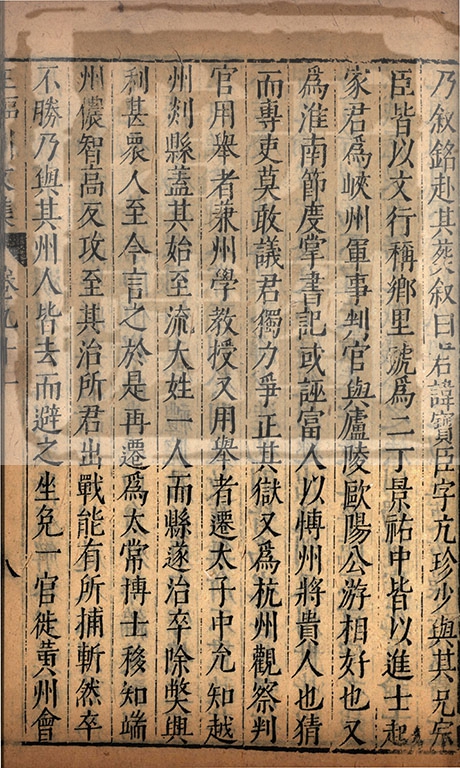 乃叙銘赴其葬叙曰君諱寶臣字元珍少與其兄宗
臣皆以文行稱鄉里號爲二丁景祐中皆以進士起
家君爲峽州軍事判官與廬陵歐陽公游相好也又
爲淮南節度掌書記或誣富人以博州將貴人也猜
而專吏莫敢議君獨力爭正其獄又爲杭州觀察判
官用舉者兼州學教授又用舉者遷太子中允知越
州剡縣蓋其始至流大姓一人而縣遂治卒除獘興
利甚衆人至今言之於是再遷爲太常博士移知端
州儂智高反攻至其治所君出戰能有所捕斬然卒
不勝乃與其州人皆去而避之坐免一官徙黄州會
王臨川文集 卷九十一 八